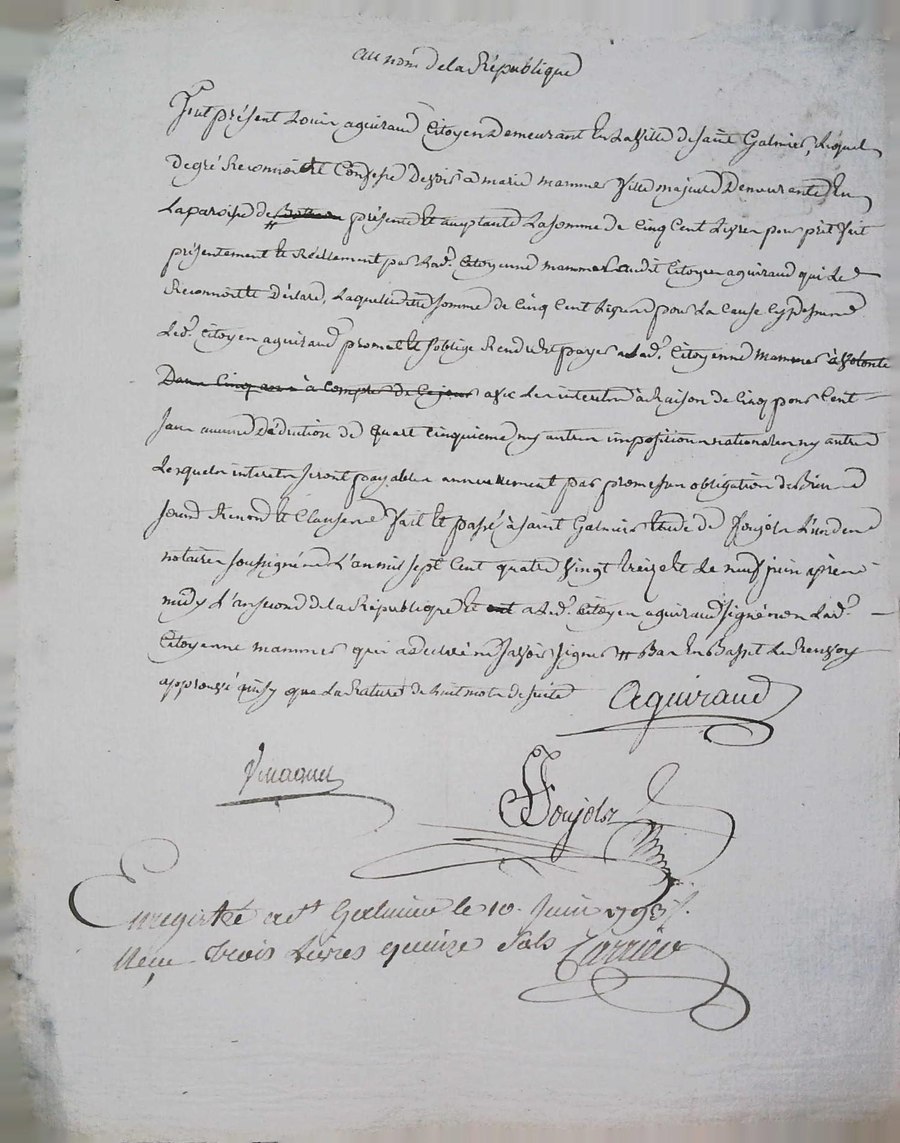 au nom de la République
Fut présent Louis aguiraud Citoyen Demeurant En La Ville de saint Galmier, Lequel
de gré Reconnoit et Confesse Devoir a marie mammer fille majeure Demeurante En
La paroisse de # présente et acceptante La somme de Cinq Cent Livres pour prêt fait
présentement et Réellement par Lad.e Citoyenne mammer audit Citoyen aguiraud qui Le
Reconnoit et Déclare, Laquelle ditte somme de Cinq Cent Livres pour La Cause Cy dessus
Led.t Citoyen aguiraud promet et s'oblige Rendre et payer a Lad.e Citoyenne mammer à volonté
Dans Cinq ans à Compter de Ce jour avec Les interets à Raison de Cinq pour Cent
sans aucune Déduction de quart Cinquieme ny autres impositions nationales ny autres
Lesquels interets seront payables annuellement par promesses obligation de Biens
soumis Renond et Clauses fait et passé à saint Galmier Etude de Poujols L'un des
notaires soussignés L'an mil sept Cent quatre vingt treize et Le neuf juin après
midy L'an second de la République et a Led.t Citoyen aguiraud signé non Lad.e
Citoyenne mammer qui a declaré ne savoir signer # Bas En Basset Le Renvoy
approuvé ainsy que La Rature de huit mots de suite Aguiraud
Poujols
Enregistré a St Galmier le 10 Juin 1793
Reçu trois Livres quinze Sols